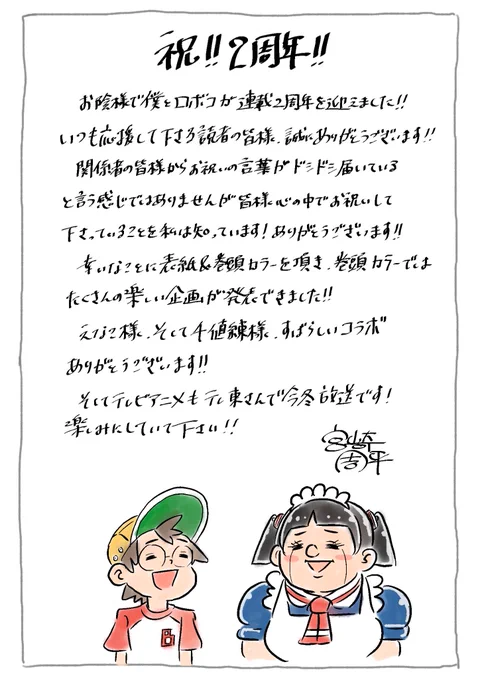 祝!!2周年!!
お陰様で僕とロボコが連載2周年を迎えました!!
いつも応援して下さる読者の皆様、誠にありがとうございます!!
関係者の皆様からお祝いの言葉がドシドシ届いている
と言う感じではありませんが皆様心の中でお祝いして
下さっていることを私は知っています!ありがとうございます!!
幸いなことに表紙&巻頭カラーを頂き、巻頭カラーでは
たくさんの楽しい企画が発表できました!!
えなこ様、そして千値練様、すばらしいコラボ
ありがとうございます!!
そしてテレビアニメもテレ東さんで今冬放送です!
楽しみにしていて下さい!!
宮崎
周平
B